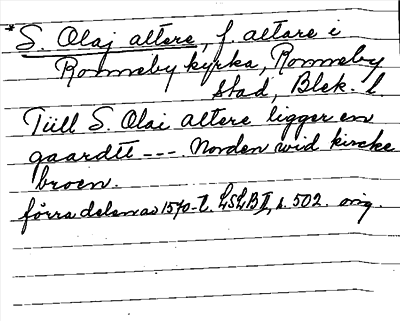 *S. Olaj altere, f. altare i
Ronneby kyrka, Ronneby
stad, Blek. l.
Till S. Olai altere ligger en
gaardtt --- Norden wid kircke
broen.
förra delen av 1570-t. LSLB II, s. 502. orig.